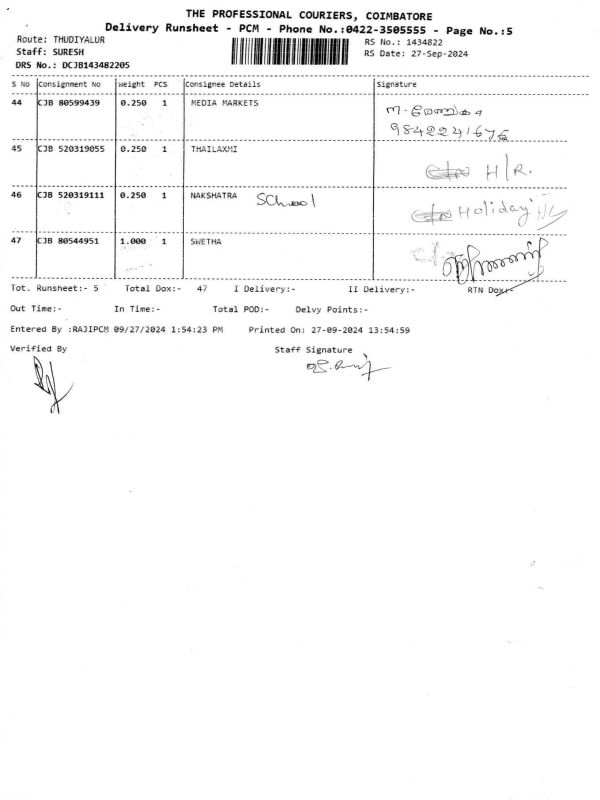 THE PROFESSIONAL COURIERS, COIMBATORE
Delivery Runsheet - PCM - Phone No.:0422-3505555 - Page No.:5
Route: THUDIYALUR
RS No.: 1434822
Staff: SURESH
RS Date: 27-Sep-2024
DRS No.: DCJB143482205
S No Consignment No Weight PCS Consignee Details Signature
44 CJB 80599439 0.250 1 MEDIA MARKETS
9842241676
45 CJB 520319055 0.250 1 THAILAXMI
H/R.
46 CJB 520319111 0.250 1 NAKSHATRA School
Holiday
47 CJB 80544951 1.000 1 SWETHA
Tot. Runsheet:- 5 Total Dox:- 47 I Delivery:- II Delivery:- RTN Dox:-
Out Time:- In Time:- Total POD:- Delvy Points:-
Entered By :RAJIPCM 09/27/2024 1:54:23 PM Printed On: 27-09-2024 13:54:59
Verified By Staff Signature